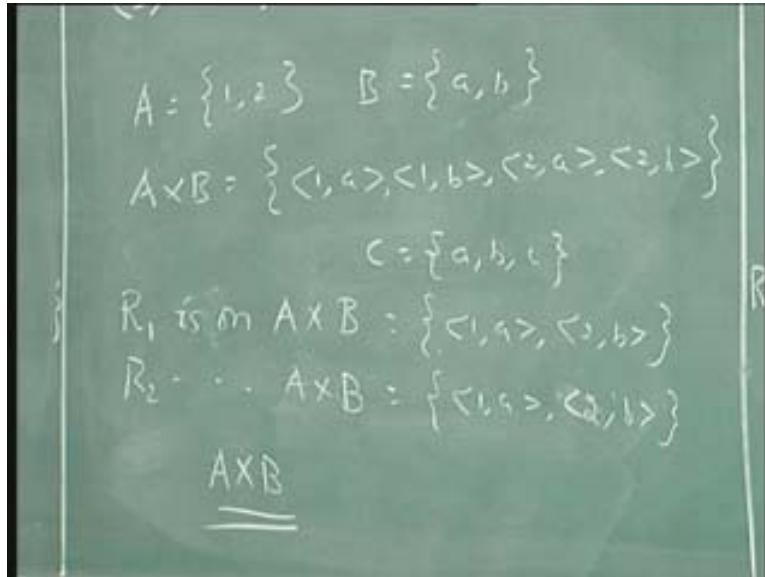 A = {1, 2} B = {a, b}
A×B = {<1, a>, <1, b>, <2, a>, <2, b>}
C = {a, b, c}
}
R₁ is on A × B = {<1, a>, <2, b>}
R
R₂ - - - A×B = {<1, a>, <2, b>}
A×B